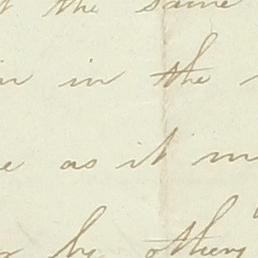 the same
in the
as it
by others